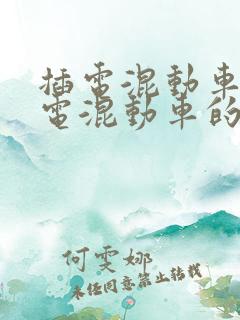 插電混動車
電混動車的
何雯娜
未经同意禁止转载